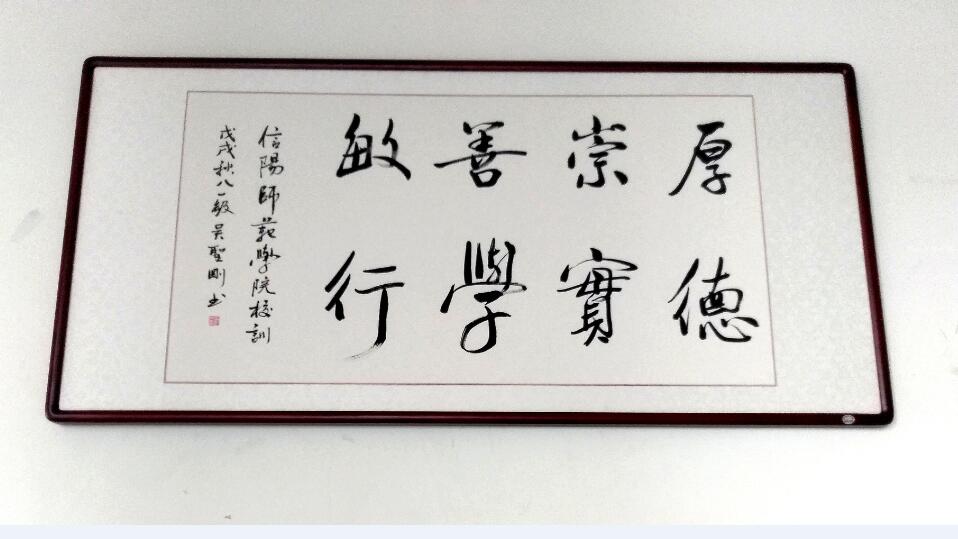 厚德
崇實
善學
敏行
信陽師範學院校訓
戊戌秋八一級吴聖剛书